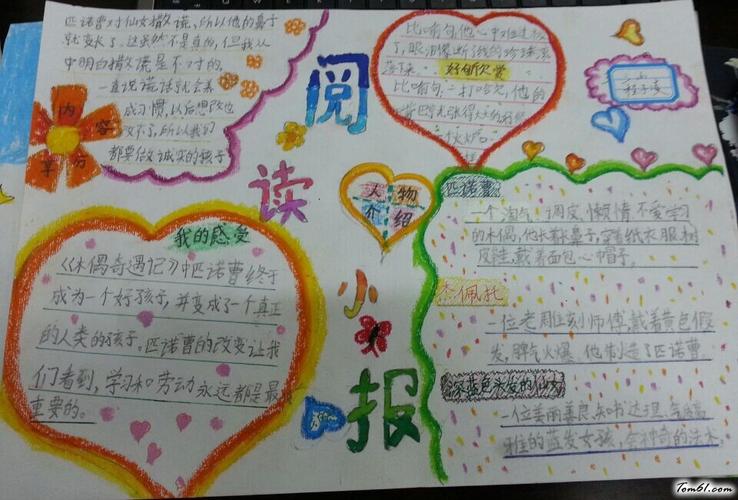 匹诺曹对仙女撒谎,所以他的鼻子
就变长了。这虽然不是真的,但我从
中明白撒谎是不对的。
一直说谎话就会养
成习惯,以后想改也
改不了,所以我们
都要做诚实的孩子
内
容
阅
读
小
报
比喻句:他心中难过极
了,眼泪像断线的珍珠
落下来。
好句欣赏
比喻句:一打哈欠,他的
人物
介绍
我的感受
《木偶奇遇记》中匹诺曹终于
成为一个好孩子,并变成了一个真正
的人类的孩子。匹诺曹的改变让我
们看到,学习和劳动永远都是最
重要的。
匹诺曹
一个淘气、调皮、懒惰、不爱学习
的木偶,他长着长鼻子,穿着纸衣服、树
皮鞋,戴着面包心帽子。
杰佩托
一位老周位刻师傅,戴着黄色假
发,脾气火爆。他制造了匹诺曹
深蓝色头发的仙女
一位美丽善良、知书达理、气质高
雅的蓝发女孩,会神奇的法术。
Tom61.com